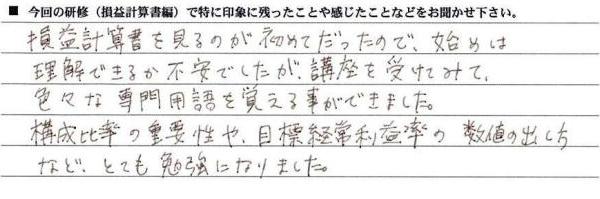 ■ 今回の研修（損益計算書編）で特に印象に残ったことや感じたことなどをお聞かせ下さい。
損益計算書を見るのが初めてだったので、始めは
理解できるか不安でしたが、講座を受けてみて、
色々な専門用語を覚える事ができました。
構成比率の重要性や、目標経常利益率の数値の出し方
など、とても勉強になりました。